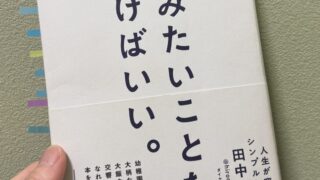 人生が
シンプル
田中
みたいこと
けばいい。
幼稚園
大柄
大阪
交響
なれ
本を